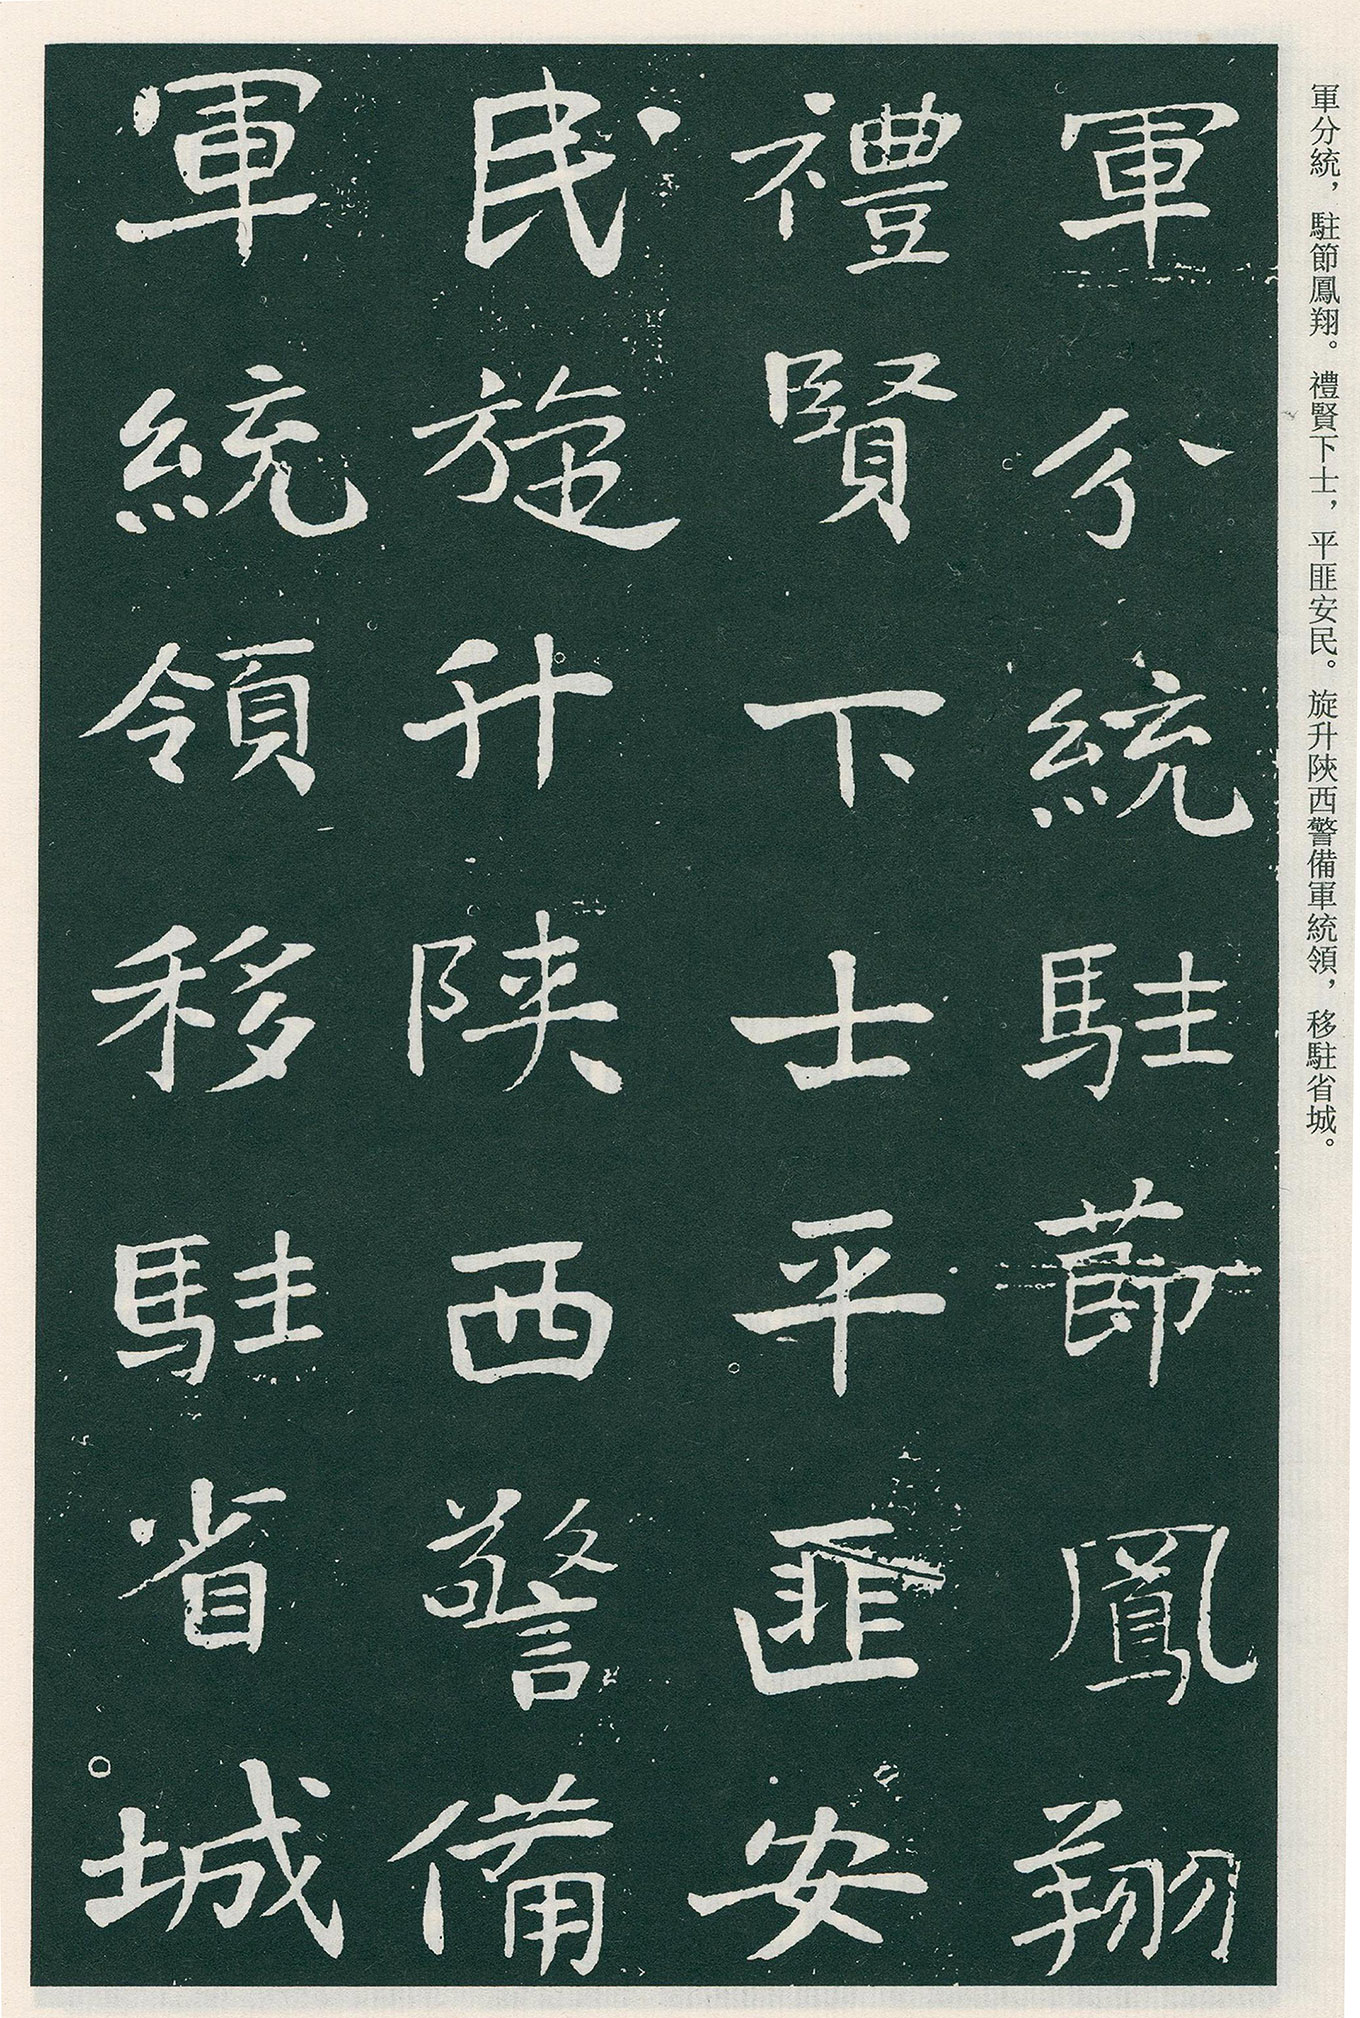 軍分統，駐節鳳翔。禮賢下士，平匪安民。旋升陝西警備軍統領，移駐省城。
軍分統駐節鳳翔
禮賢下士平匪安
民旋升陝西警備
軍統領移駐省城